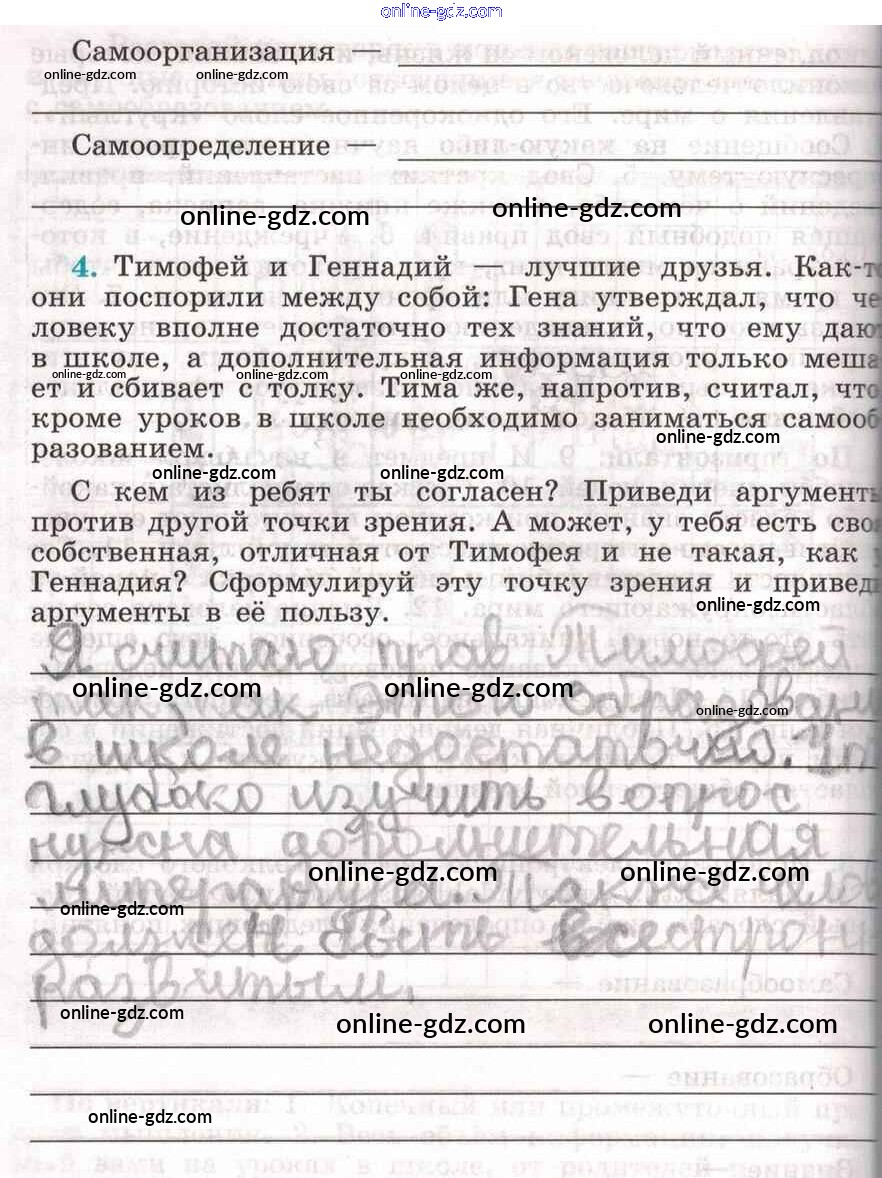 online-gdz.com
Самоорганизация —
online-gdz.com online-gdz.com
Самоопределение —
online-gdz.com online-gdz.com
4. Тимофей и Геннадий — лучшие друзья. Как-то
они поспорили между собой: Гена утверждал, что че
ловеку вполне достаточно тех знаний, что ему дают
в школе, а дополнительная информация только меша
online-gdz.com online-gdz.com online-gdz.com
ет и сбивает с толку. Тима же, напротив, считал, что
кроме уроков в школе необходимо заниматься самооб
online-gdz.com
разованием.
online-gdz.com online-gdz.com
С кем из ребят ты согласен? Приведи аргументы
против другой точки зрения. А может, у тебя есть своя
собственная, отличная от Тимофея и не такая, как у
Геннадия? Сформулируй эту точку зрения и приведи
online-gdz.com
аргументы в её пользу.
Я считаю прав Тимофей
online-gdz.com online-gdz.com
так как этого образовани
online-gdz.com
в школе недостаточно.
глубоко изучить вопрос
нужна дополнительная
online-gdz.com online-gdz.com
литература. Также чело
online-gdz.com
должен быть всесторон
развитым.
online-gdz.com online-gdz.com online-gdz.com
Образование —
online-gdz.com